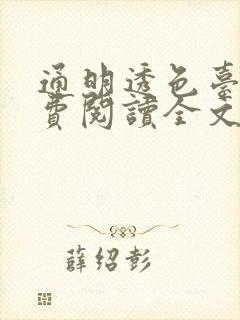 通明透色臺
費閱讀全文
薛紹彭